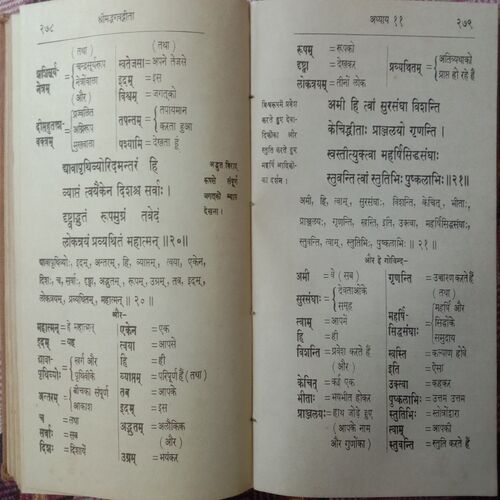 २७८
श्रीमद्भगवद्गीता
(तथा)
शशिसूर्य-नेत्रम् = चन्द्रसूर्यरूप नेत्रोंवाला
(और)
दीप्तहुताश-वक्त्रम् = प्रज्वलित अग्निरूप मुखवाला
(तथा)
स्वतेजसा = अपने तेजसे
इदम् = इस
विश्वम् = जगत्को
तपन्तम् = तपायमान करता हुआ
पश्यामि = देखता हूँ
द्यावापृथिव्योरिदमन्तरं हि
व्याप्तं त्वयैकेन दिशश्च सर्वाः ।
दृष्ट्वाद्भुतं रूपमुग्रं तवेदं
लोकत्रयं प्रव्यथितं महात्मन् ॥२०॥
अद्भुत विराट्
रूपसे संपूर्ण
जगत्को व्याप्त
देखना ।
द्यावापृथिव्योः, इदम्, अन्तरम्, हि, व्याप्तम्, त्वया, एकेन,
दिशः, च, सर्वाः, दृष्ट्वा, अद्भुतम्, रूपम्, उग्रम्, तव, इदम्,
लोकत्रयम्, प्रव्यथितम्, महात्मन् ॥ २० ॥
और-
महात्मन् = हे महात्मन्
इदम् = यह
द्यावा-पृथिव्योः = स्वर्ग और पृथिवीके
अन्तरम् = बीचका संपूर्ण आकाश
च = तथा
सर्वाः = सब
दिशः = दिशायें
एकेन = एक
त्वया = आपसे
हि = ही
व्याप्तम् = परिपूर्ण हैं (तथा)
तव = आपके
इदम् = इस
अद्भुतम् = अलौकिक
(और)
उग्रम् = भयंकर
अध्याय ११
२७९
रूपम् = रूपको
दृष्ट्वा = देखकर
लोकत्रयम् = तीनों लोक
प्रव्यथितम् = अतिव्यथाको प्राप्त हो रहे हैं
अमी हि त्वां सुरसंघा विशन्ति
केचिद्भीताः प्राञ्जलयो गृणन्ति ।
स्वस्तीत्युक्त्वा महर्षिसिद्धसंघाः
स्तुवन्ति त्वां स्तुतिभिः पुष्कलाभिः ॥२१॥
विश्वरूपमें प्रवेश
करते हुए देवा-
दिकोंका और
स्तुति करते हुए
महर्षि आदिकों-
का दर्शन ।
अमी, हि, त्वाम्, सुरसंघाः, विशन्ति, केचित्, भीताः,
प्राञ्जलयः, गृणन्ति, स्वस्ति, इति, उक्त्वा, महर्षिसिद्धसंघाः,
स्तुवन्ति, त्वाम्, स्तुतिभिः, पुष्कलाभिः ॥ २१ ॥
और हे गोविन्द-
अमी = वे (सब)
सुरसंघाः = देवताओंके समूह
त्वाम् = आपमें
हि = ही
विशन्ति = प्रवेश करते हैं
(और)
केचित् = कई एक
भीताः = भयभीत होकर
प्राञ्जलयः = हाथ जोड़े हुए
(आपके नाम
और गुणोंका)
गृणन्ति = उच्चारण करते हैं
(तथा)
महर्षि-सिद्धसंघाः = महर्षि और सिद्धोंके समुदाय
स्वस्ति = कल्याण होवे
इति = ऐसा
उक्त्वा = कहकर
पुष्कलाभिः = उत्तम उत्तम
स्तुतिभिः = स्तोत्रोंद्वारा
त्वाम् = आपकी
स्तुवन्ति = स्तुति करते हैं